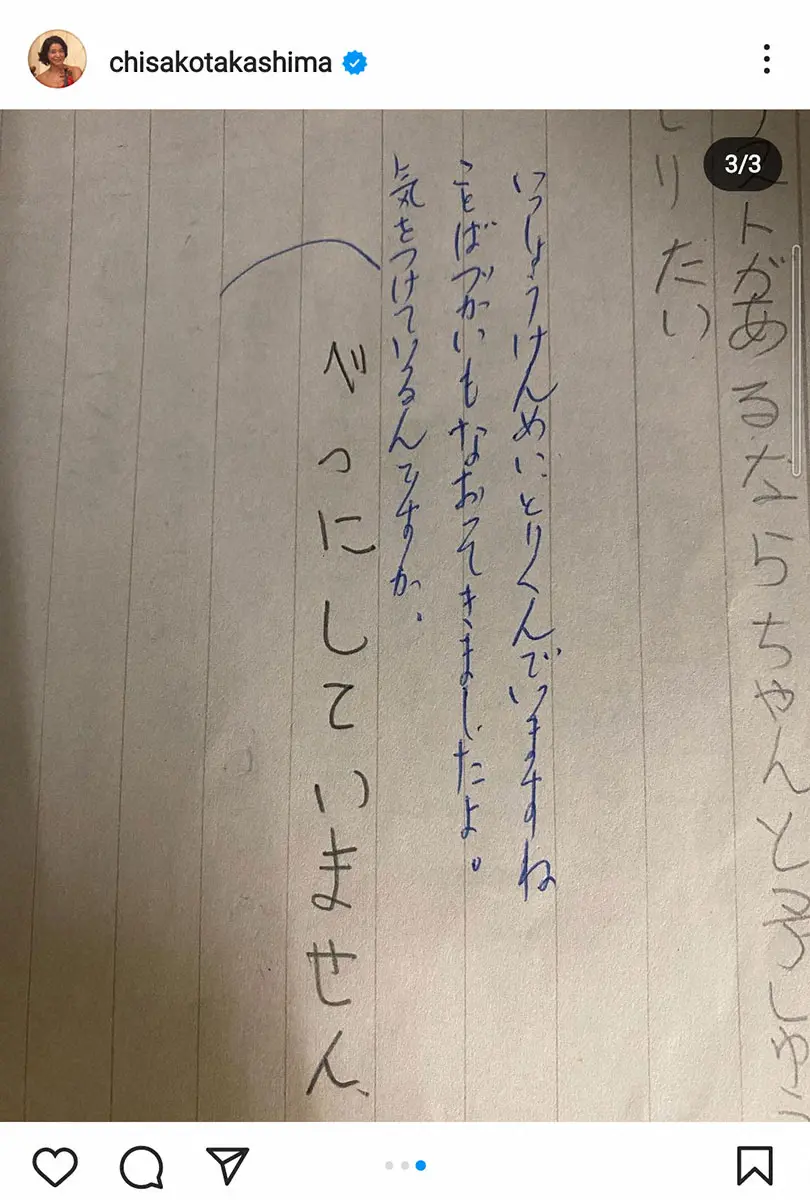 chisakotakashima
3/3
ストがあるならちゃんと
しりたい
いっしょうけんめいとりくんでいますね
ことばづかいもなおってきましたよ。
気をつけているんですか。
べつにしていません